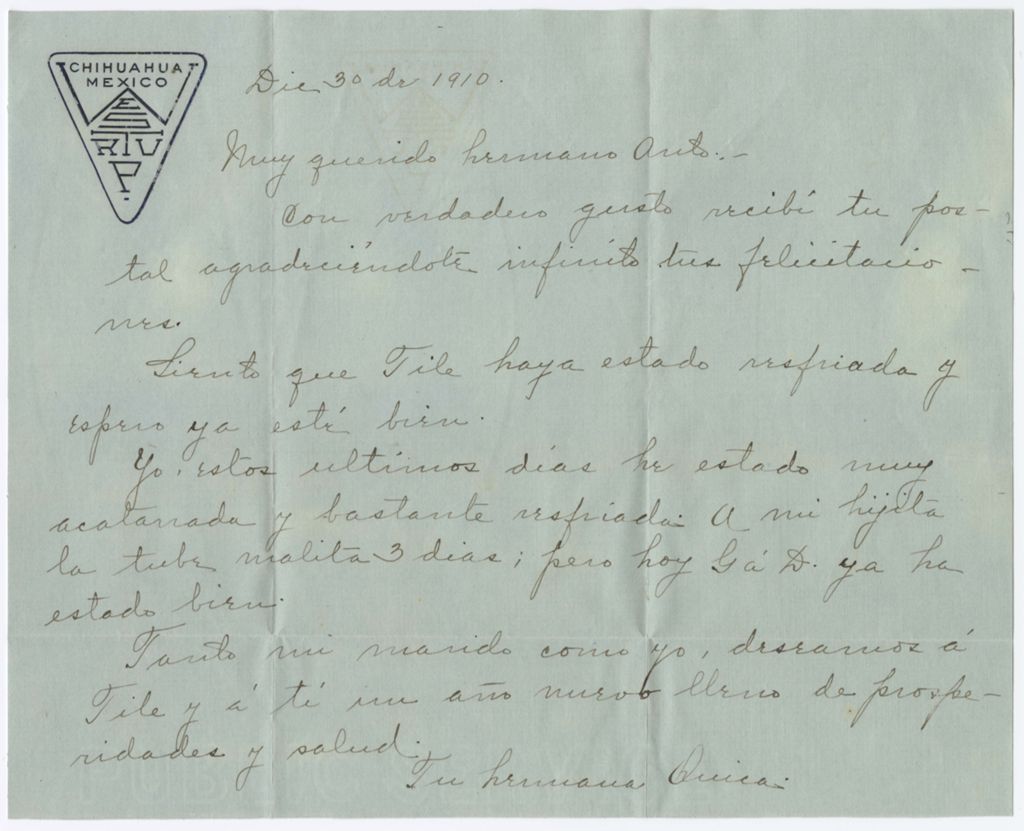 CHIHUAHUA
MEXICO
Dic 30 de 1910.
Muy querido hermano Anto:.-
Con verdadero gusto recibí tu pos-
tal agradeciéndote infinito tus felicitacio-
nes.
Siento que Tile haya estado resfriada y
espero ya esté bien.
Yo, estos ultimos días he estado muy
acatarrada y bastante resfriada. A mi hijita
la tube malita 3 dias; pero hoy G á D. ya ha
estado bien.
Tanto mi marido como yo, deseamos á
Tile y á tí un año nuevo lleno de prospe-
ridades y salud.
Tu hermana Quica.